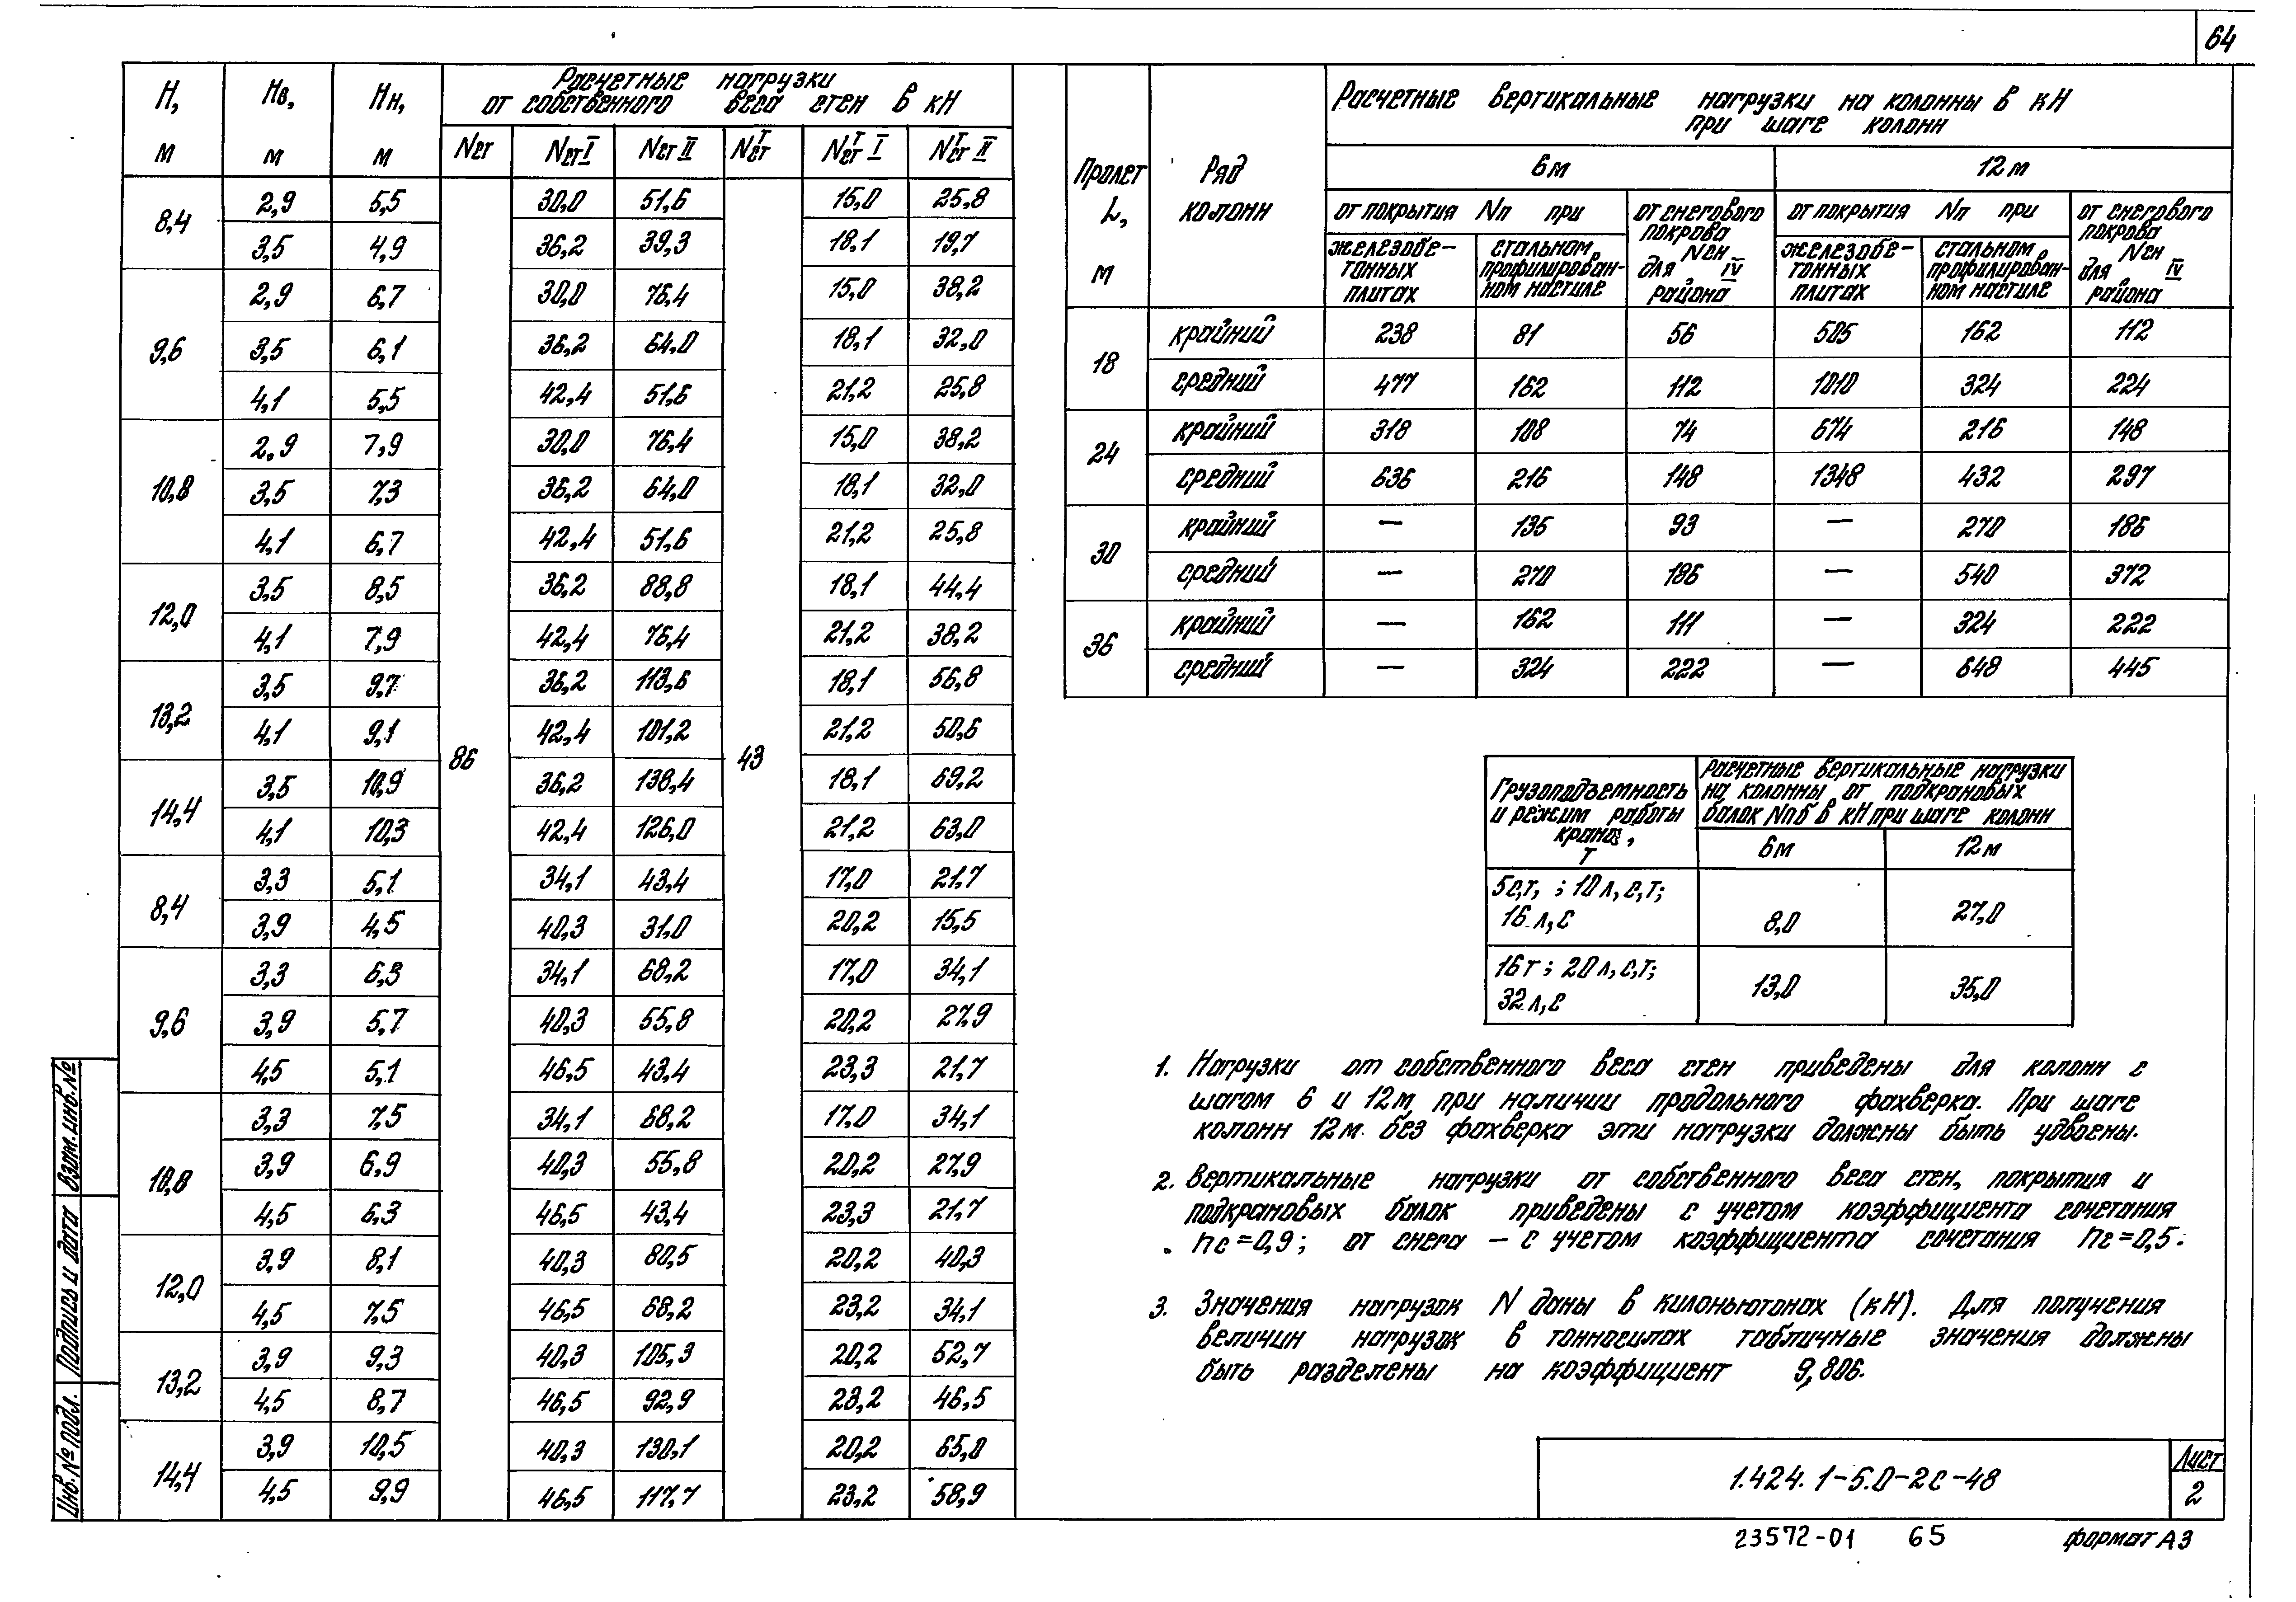 64
Н, м | Нв, м | Нн, м | Расчетные нагрузки от собственного веса стен в кН
Nст | Nст I | Nст II | Nст^т | Nст^т I | Nст^т II
86 | 43
8,4 | 2,9 | 5,5 | 30,0 | 51,6 | 15,0 | 25,8
3,5 | 4,9 | 36,2 | 39,3 | 18,1 | 19,7
9,6 | 2,9 | 6,7 | 30,0 | 76,4 | 15,0 | 38,2
3,5 | 6,1 | 36,2 | 64,0 | 18,1 | 32,0
4,1 | 5,5 | 42,4 | 51,6 | 21,2 | 25,8
10,8 | 2,9 | 7,9 | 30,0 | 76,4 | 15,0 | 38,2
3,5 | 7,3 | 36,2 | 64,0 | 18,1 | 32,0
4,1 | 6,7 | 42,4 | 51,6 | 21,2 | 25,8
12,0 | 3,5 | 8,5 | 36,2 | 88,8 | 18,1 | 44,4
4,1 | 7,9 | 42,4 | 76,4 | 21,2 | 38,2
13,2 | 3,5 | 9,7 | 36,2 | 113,6 | 18,1 | 56,8
4,1 | 9,1 | 42,4 | 101,2 | 21,2 | 50,6
14,4 | 3,5 | 10,9 | 36,2 | 138,4 | 18,1 | 69,2
4,1 | 10,3 | 42,4 | 126,0 | 21,2 | 63,0
8,4 | 3,3 | 5,1 | 34,1 | 43,4 | 17,0 | 21,7
3,9 | 4,5 | 40,3 | 31,0 | 20,2 | 15,5
9,6 | 3,3 | 6,3 | 34,1 | 68,2 | 17,0 | 34,1
3,9 | 5,7 | 40,3 | 55,8 | 20,2 | 27,9
4,5 | 5,1 | 46,5 | 43,4 | 23,3 | 21,7
10,8 | 3,3 | 7,5 | 34,1 | 68,2 | 17,0 | 34,1
3,9 | 6,9 | 40,3 | 55,8 | 20,2 | 27,9
4,5 | 6,3 | 46,5 | 43,4 | 23,3 | 21,7
12,0 | 3,9 | 8,1 | 40,3 | 80,5 | 20,2 | 40,3
4,5 | 7,5 | 46,5 | 68,2 | 23,2 | 34,1
13,2 | 3,9 | 9,3 | 40,3 | 105,3 | 20,2 | 52,7
4,5 | 8,7 | 46,5 | 92,9 | 23,2 | 46,5
14,4 | 3,9 | 10,5 | 40,3 | 130,1 | 20,2 | 65,0
4,5 | 9,9 | 46,5 | 117,7 | 23,2 | 58,9
Пролет L, м | Ряд колонн | Расчетные вертикальные нагрузки на колонны в кН
при шаге колонн
6м | 12м
от покрытия Nп при | от снегового покрова Nсн для IV района | от покрытия Nп при | от снегового покрова Nсн для IV района
железобе-тонных плитах | стальном профилирован-ном настиле | железобе-тонных плитах | стальном профилирован-ном настиле
18 | крайний | 238 | 81 | 56 | 505 | 162 | 112
средний | 477 | 162 | 112 | 1010 | 324 | 224
24 | крайний | 318 | 108 | 74 | 674 | 216 | 148
средний | 636 | 216 | 148 | 1348 | 432 | 297
30 | крайний | — | 135 | 93 | — | 270 | 186
средний | — | 270 | 186 | — | 540 | 372
36 | крайний | — | 162 | 111 | — | 324 | 222
средний | — | 324 | 222 | — | 648 | 445
Грузоподъемность и режим работы крана, т | Расчетные вертикальные нагрузки на колонны от подкрановых балок Nпб в кН при шаге колонн
6м | 12м
5с,т, ; 10 л,с,т; 16 л,с | 8,0 | 27,0
16т ; 20 л,с,т; 32 л,с | 13,0 | 35,0
1. Нагрузки от собственного веса стен приведены для колонн с
шагом 6 и 12м при наличии продольного фахверка. При шаге
колонн 12м без фахверка эти нагрузки должны быть удвоены.
2. Вертикальные нагрузки от собственного веса стен, покрытия и
подкрановых балок приведены с учетом коэффициента сочетания
nс=0,9; от снега – с учетом коэффициента сочетания nс=0,5.
3. Значения нагрузок N даны в килоньютонах (кН). Для получения
величин нагрузок в тоннасилах табличные значения должны
быть разделены на коэффициент 9,806.
Взам. инв. №
Подпись и дата
Инв. № подл.
1.424.1-5.0-2с-48
Лист
2
23572-01 65 формат А3